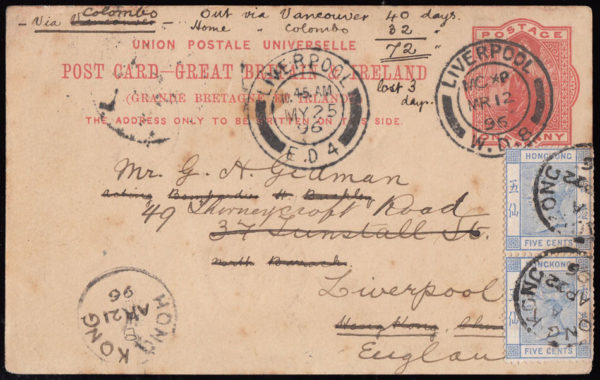 Colombo
- Via Vancouver
Out via Vancouver 40 days.
Home " Colombo 32 "
72 "
lost 3 days.
UNION POSTALE UNIVERSELLE
POST CARD-GREAT BRITAIN & IRELAND
(GRANDE BRETAGNE ET IRLANDE)
THE ADDRESS ONLY TO BE WRITTEN ON THIS SIDE.
POSTAGE
PENNY
LIVERPOOL
10.45 AM
MY 25
96
E.D 4
LIVERPOOL
MR 12
96
W.D.B
Mr. G. H. Gidman
acting Bombardier
49 Thorneycroft Road
37 Tunstall St.
North Barrack
Liverpool
Hong Kong, China
England
HONG KONG
AP 21
96
HONGKONG
五仙
FIVE CENTS
HONGKONG
五仙
FIVE CENTS
HONG KONG